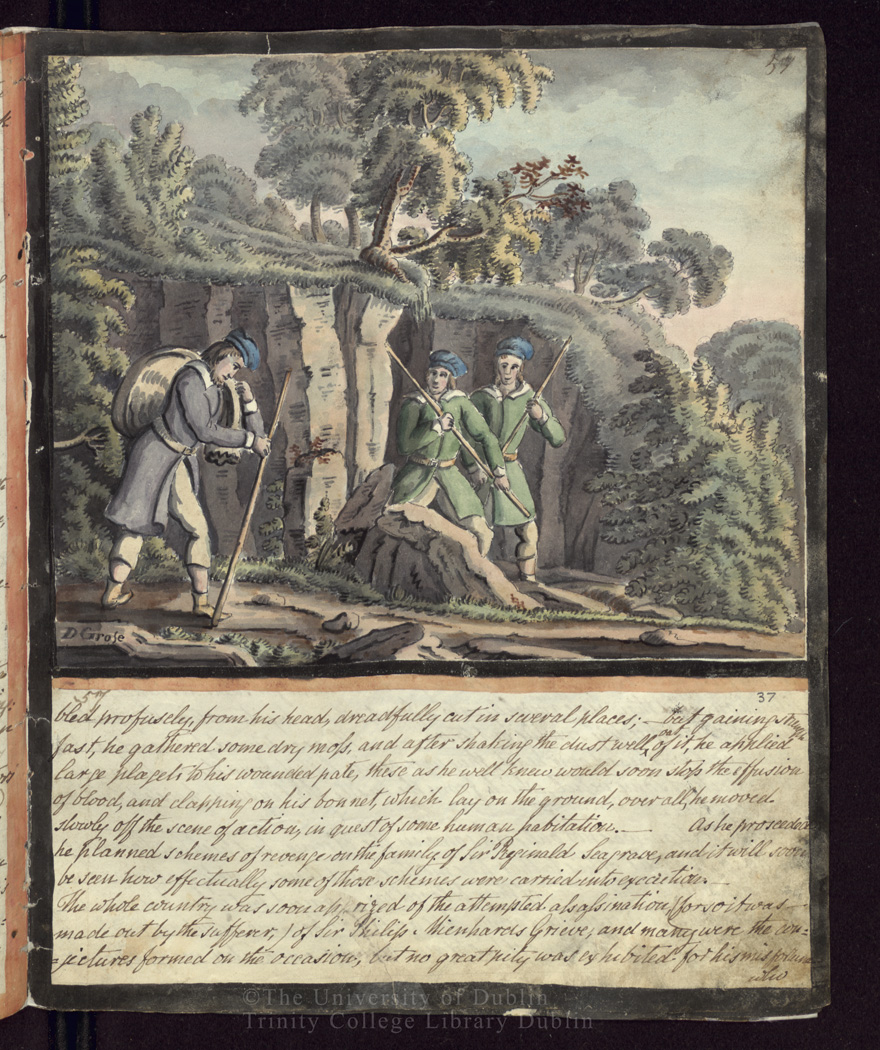 57
D Grose
57
37
bled profusely, from his head, dreadfully cut in several places; — but gaining
fast, he gathered some dry moss, and after shaking the dust well out of it, he applied
large plagets to his wounded pate, these as he well knew would soon stop the effusion
of blood, and clapping on his bonnet, which lay on the ground, over all, he moved
slowly off the scene of action, in quest of some human habitation. — As he proseeded
he planned schemes of revenge on the family of Sir Reginald Seagrave, and it will soon
be seen how effictually some of those schemes were carried into execution. —
The whole country was soon apprized of the attempted assassination, (for so it was
made out by the sufferer,) of Sir Philip Mienhards Grieve, and many were the con=
=jictures formed on the occasion, but no great pity was exhibited for his misfortune
who
©The University of Dublin
Trinity College Library Dublin